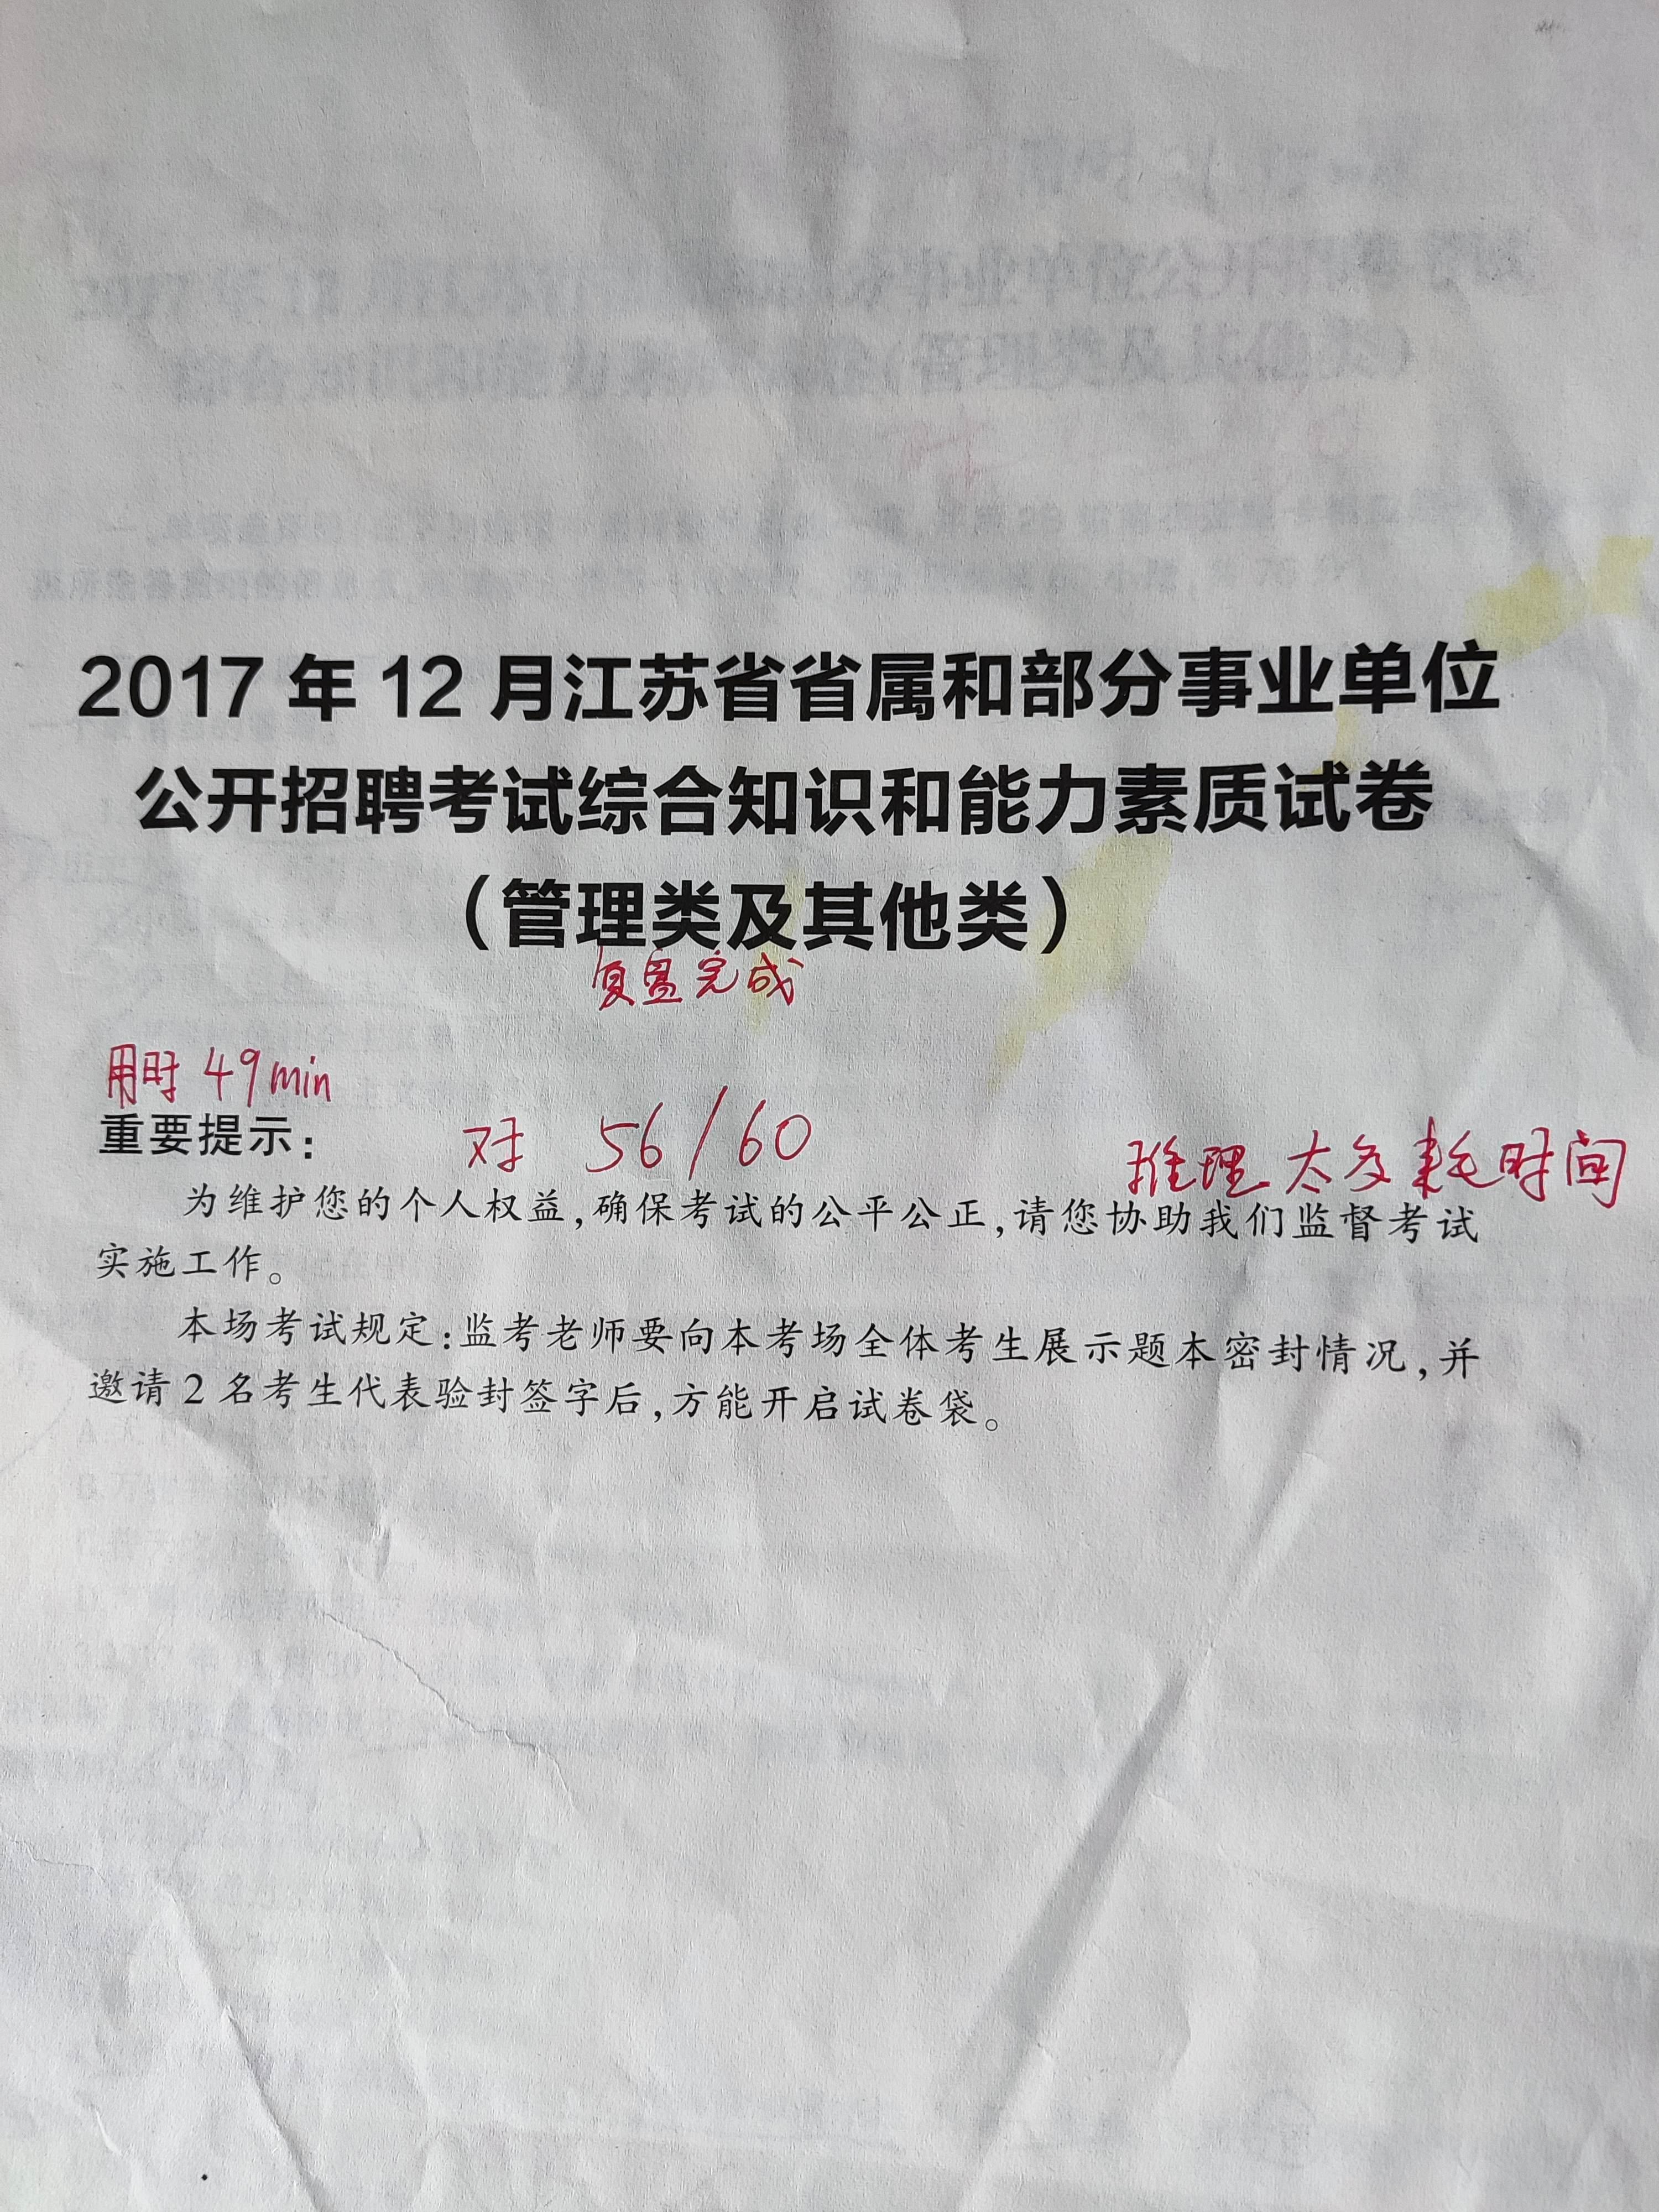 2017 年 12 月江苏省省属和部分事业单位
公开招聘考试综合知识和能力素质试卷
（管理类及其他类）
复盘完成
用时 49min
重要提示：
对 56/60
推理太多耗时间
为维护您的个人权益，确保考试的公平公正，请您协助我们监督考试
实施工作。
本场考试规定：监考老师要向本考场全体考生展示题本密封情况，并
邀请 2 名考生代表验封签字后，方能开启试卷袋。